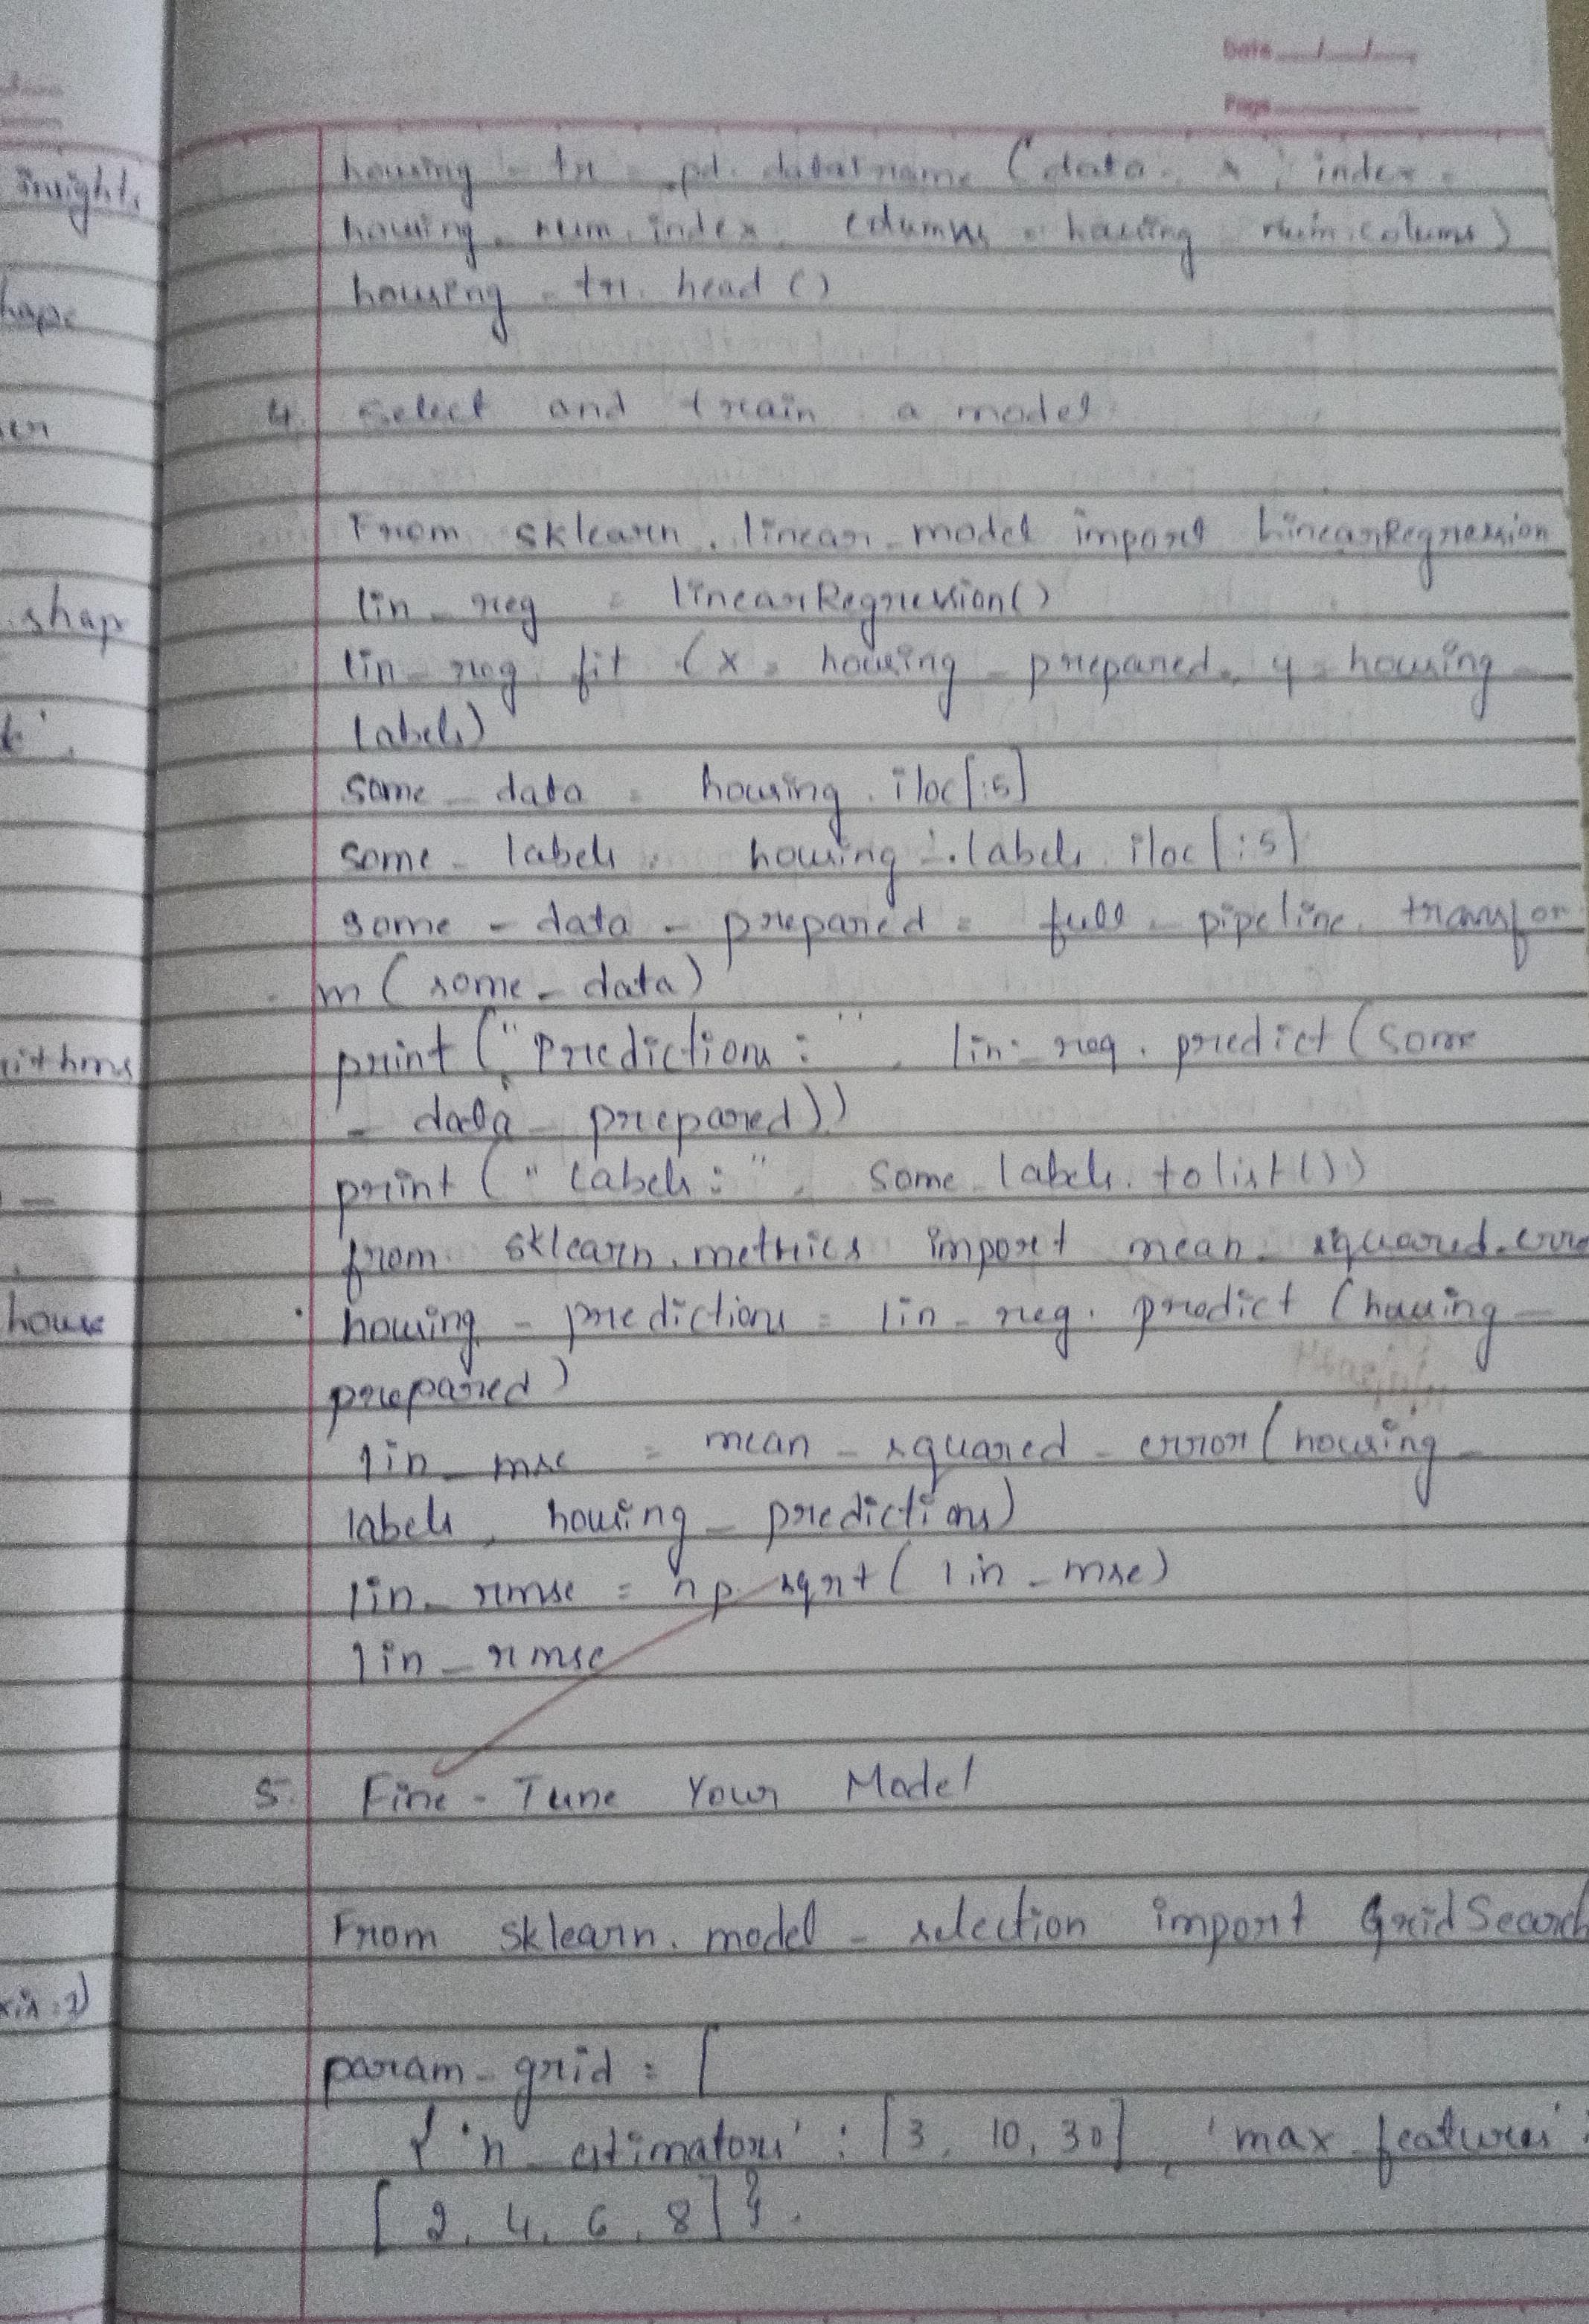 Date
Page
housing - tr = pd. datatname (data = x, index =
housing. num. index, columns = housing num. colums)
housing - tr. head ()
4. Select and train a model
From sklearn. linear - model import LinearRegression
lin - reg = linearRegression()
lin - reg. fit (x = housing - prepared, y = housing -
labels)
some - data = housing. iloc[:5]
some - labels = housing - . labels. iloc[:5]
some - data - prepared = full - pipeline. transfor
m (some - data)
print ("Predictions: ", lin - reg. predict (some
- data - prepared))
print (" Labels: ", some - labels. tolist())
from sklearn. metrics import mean - squared - erro
housing - predictions = lin - reg. predict (housing -
prepared)
lin - mse = mean - squared - error (housing -
labels, housing - predictions)
lin - rmse = np. sqrt ( lin - mse)
lin - rmse
5. Fine - Tune Your Model
From sklearn. model - selection import GridSearch
param - grid = [
{ 'n - estimators' : [3, 10, 30], 'max - features' :
[ 2, 4, 6, 8] }.
insights
hape
shap
rithms
house
xis = 1)